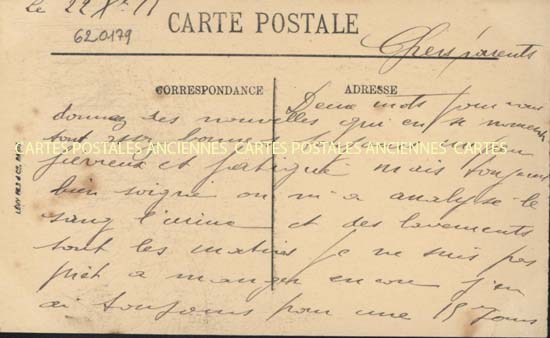 le 22 Xre 11
CARTE POSTALE
620179
Chers parents
CORRESPONDANCE
ADRESSE
Deux mots pour vous
donner des nouvelles qui en ce moment
sont assez bonnes
CARTES POSTALES ANCIENNES CARTES POSTALES ANCIENNES CARTES
fievreux et fatigué mais toujours
bien soigné on m'a analysé le
sang l'urine et des lavements
tout les matins je ne suis pas
prêt a manger encore j'en
ai toujours pour une 15e jours
LÉVY FILS & Cie